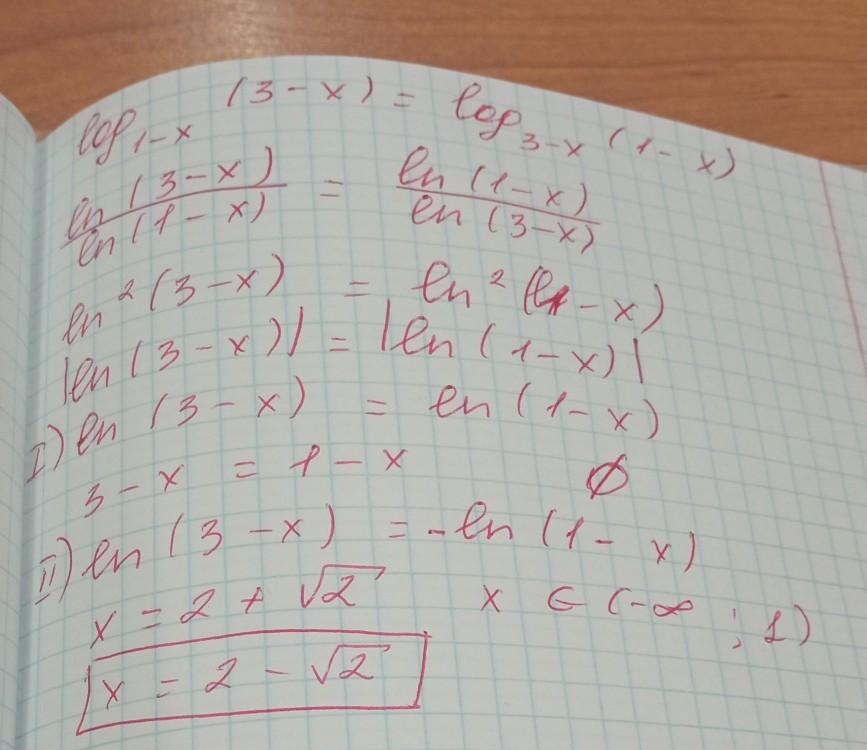 log₁₋ₓ (3 - x) = log₃₋ₓ (1 - x)
ln (3 - x) / ln (1 - x) = ln (1 - x) / ln (3 - x)
ln² (3 - x) = ln² (1 - x)
|ln (3 - x)| = |ln (1 - x)|
I) ln (3 - x) = ln (1 - x)
3 - x = 1 - x ∅
II) ln (3 - x) = - ln (1 - x)
x = 2 + √2 x ∈ (-∞ ; 1)
x = 2 - √2